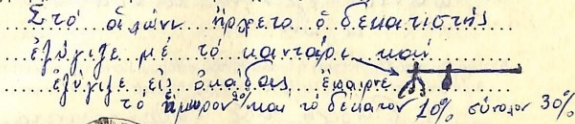 Στό ἁλώνι ἤρχετο ὁ δεκατιστής
ἐζύγιζε μέ τό καντάρι καί
ἐζύγιζε εἰς ὀκάδας ἔπαιρνε
τό ἥμορον 20% καί τό δέκατον 10% σύνολον 30%